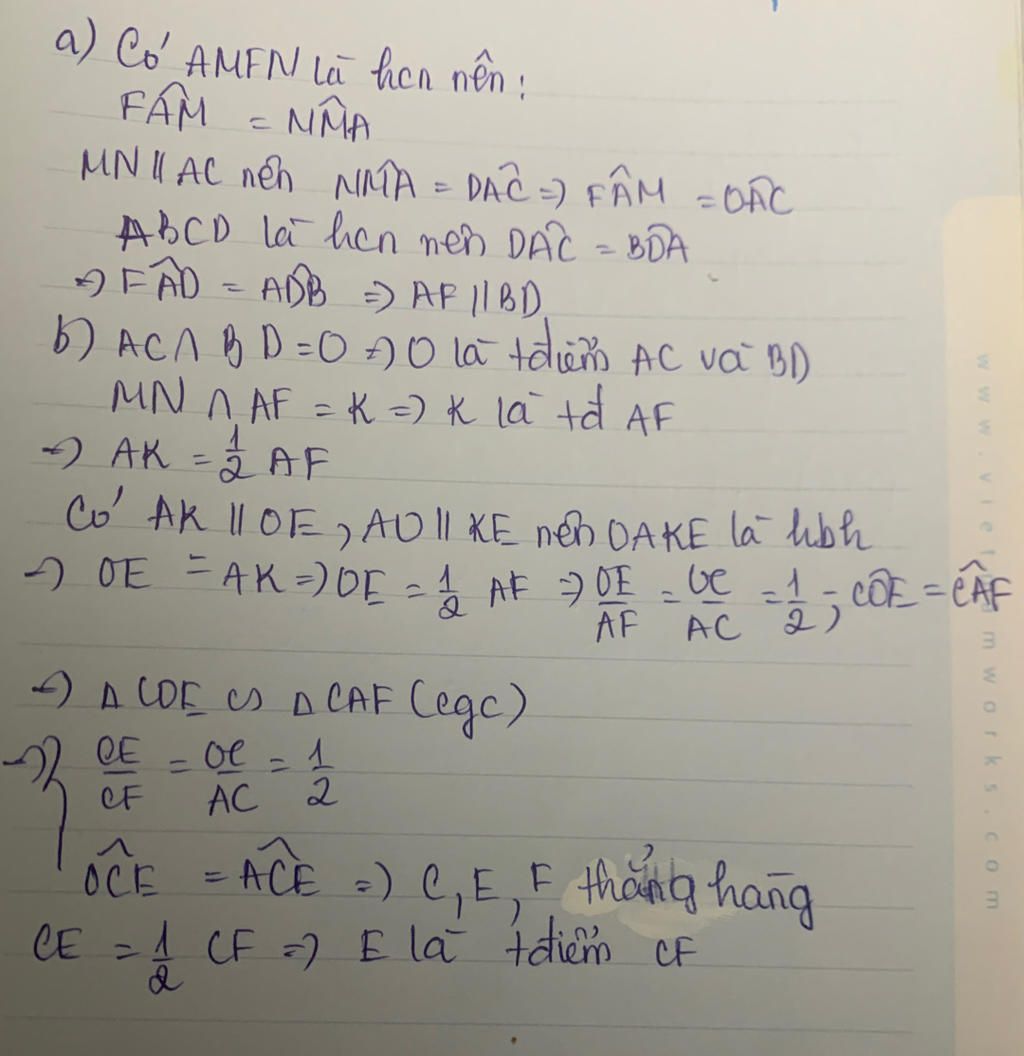 a) Có AMFN là hcn nên:
FÂM = NM̂A
MN // AC nên NM̂A = DÂC => FÂM = DÂC
ABCD là hcn nên DÂC = BD̂A
=> FÂD = AD̂B => AF // BD
b) AC ∩ BD = O => O là tđiểm AC và BD
MN ∩ AF = K => K là tđ AF
=> AK = 1/2 AF
Có AK // OE, AO // KE nên OAKE là hbh
=> OE = AK => OE = 1/2 AF => OE/AF = OC/AC = 1/2; CÔE = CÂF
=> Δ COE ∽ Δ CAF (cgc)
=> { CE/CF = OC/AC = 1/2
OĈE = AĈE => C, E, F thẳng hàng
CE = 1/2 CF => E là tđiểm CF
www.vie mworks.com